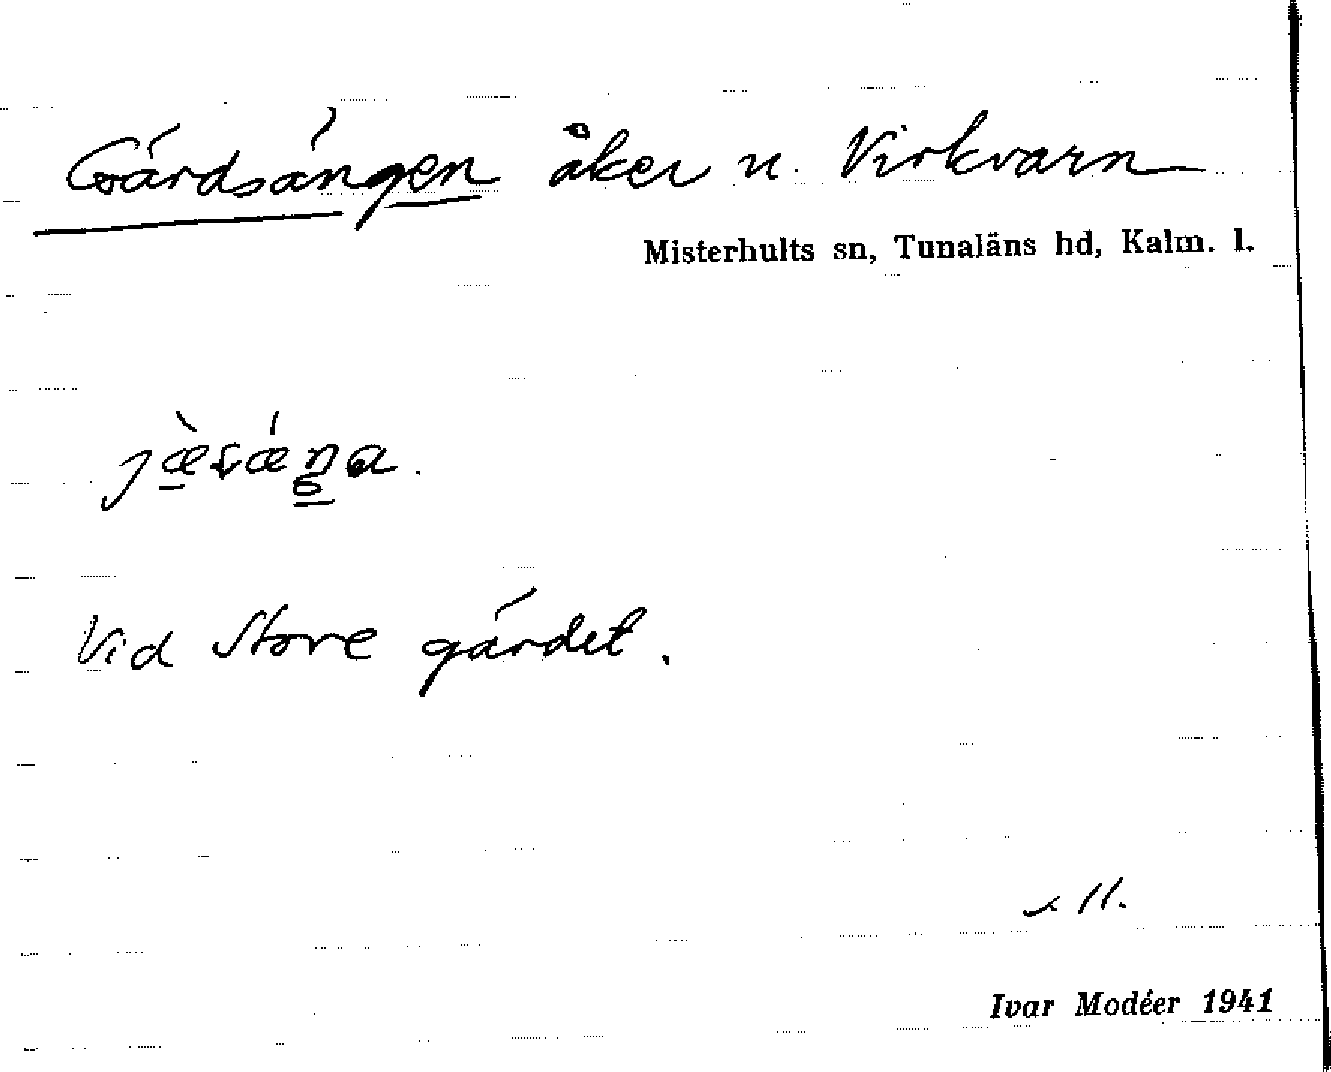 Gärdsängen åker u. Virkvarn
Misterhults sn, Tunaläns hd, Kalm. l.
Vid Store gärdet.
11.
Ivar Modéer 1941